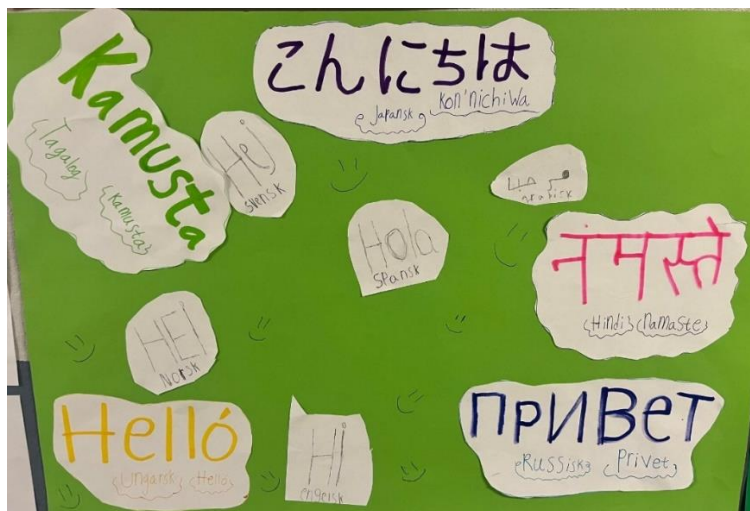 Kamusta
Tagalog
Kamusta
Hej
Svensk
こんにちは
Japansk
Kon'nichiwa
مرحبا
arabisk
Hola
Spansk
नंमस्ते
Hindi
namaste
HEI
Norsk
Helló
Ungarsk
Helló
Hi
engelsk
Привет
Russisk
Privet